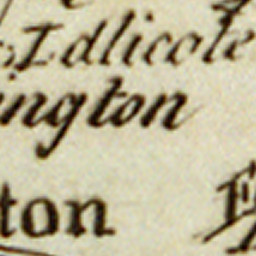 Idlicote
ington
ton